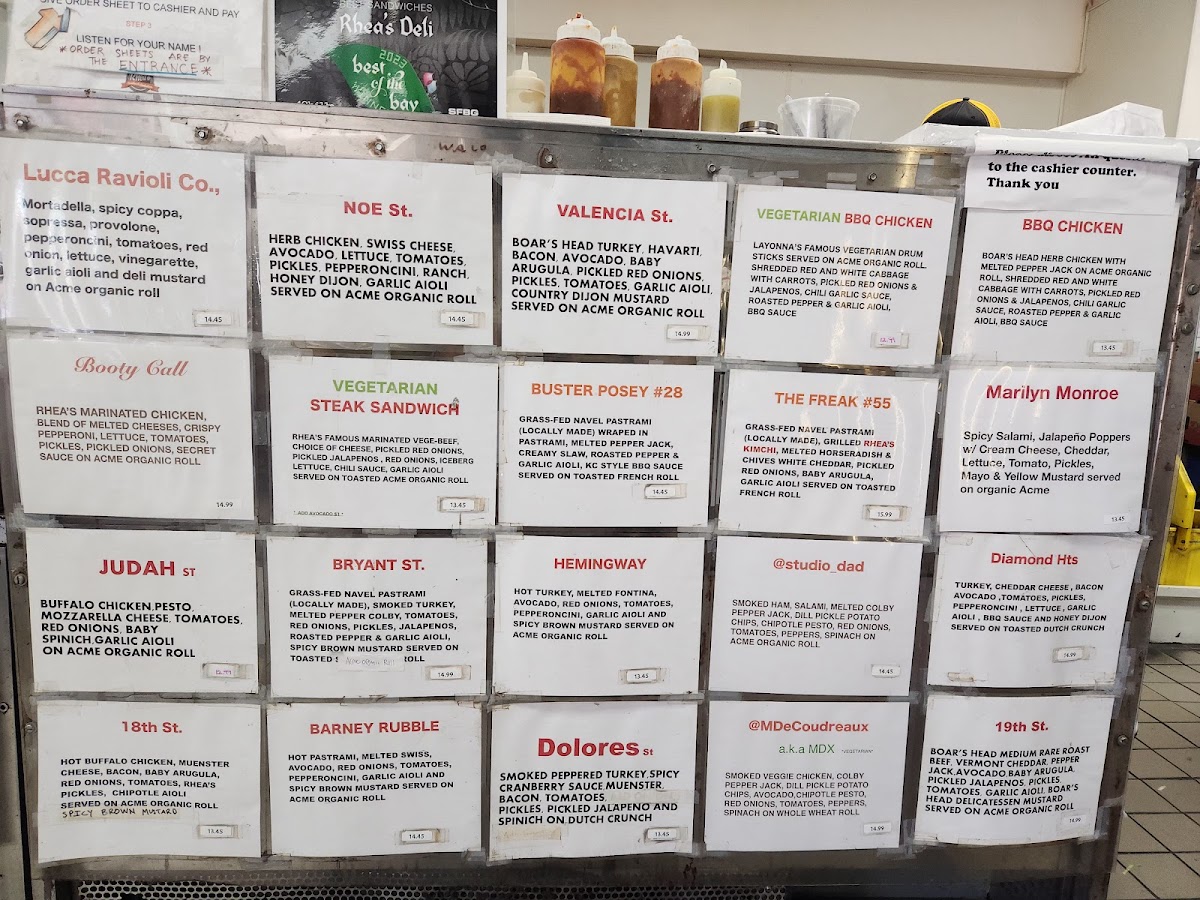 GIVE ORDER SHEET TO CASHIER AND PAY
STEP 3
LISTEN FOR YOUR NAME !
*ORDER SHEETS ARE BY
THE ENTRANCE*
SANDWICHES
Rhea's Deli
2023
best
of the
bay
SFBG
to the cashier counter.
Thank you
Lucca Ravioli Co.,
Mortadella, spicy coppa,
sopressa, provolone,
pepperoncini, tomatoes, red
onion, lettuce, vinegarette,
garlic aioli and deli mustard
on Acme organic roll
14.45
NOE St.
HERB CHICKEN, SWISS CHEESE,
AVOCADO, LETTUCE, TOMATOES,
PICKLES, PEPPERONCINI, RANCH,
HONEY DIJON, GARLIC AIOLI
SERVED ON ACME ORGANIC ROLL
14.45
VALENCIA St.
BOAR'S HEAD TURKEY, HAVARTI,
BACON, AVOCADO, BABY
ARUGULA, PICKLED RED ONIONS,
PICKLES, TOMATOES, GARLIC AIOLI,
COUNTRY DIJON MUSTARD
SERVED ON ACME ORGANIC ROLL
14.99
VEGETARIAN BBQ CHICKEN
LAYONNA'S FAMOUS VEGETARIAN DRUM
STICKS SERVED ON ACME ORGANIC ROLL.
SHREDDED RED AND WHITE CABBAGE
WITH CARROTS, PICKLED RED ONIONS &
JALAPENOS, CHILI GARLIC SAUCE,
ROASTED PEPPER & GARLIC AIOLI,
BBQ SAUCE
BBQ CHICKEN
BOAR'S HEAD HERB CHICKEN WITH
MELTED PEPPER JACK ON ACME ORGANIC
ROLL, SHREDDED RED AND WHITE
CABBAGE WITH CARROTS, PICKLED RED
ONIONS & JALAPENOS, CHILI GARLIC
SAUCE, ROASTED PEPPER & GARLIC
AIOLI, BBQ SAUCE
13.45
Booty Call
RHEA'S MARINATED CHICKEN,
BLEND OF MELTED CHEESES, CRISPY
PEPPERONI, LETTUCE, TOMATOES,
PICKLES, PICKLED ONIONS, SECRET
SAUCE ON ACME ORGANIC ROLL
14.99
VEGETARIAN
STEAK SANDWICH
RHEA'S FAMOUS MARINATED VEGE-BEEF,
CHOICE OF CHEESE, PICKLED RED ONIONS,
PICKLED JALAPENOS , RED ONIONS, ICEBERG
LETTUCE, CHILI SAUCE, GARLIC AIOLI
SERVED ON TOASTED ACME ORGANIC ROLL
13.45
BUSTER POSEY #28
GRASS-FED NAVEL PASTRAMI
(LOCALLY MADE) WRAPED IN
PASTRAMI, MELTED PEPPER JACK,
CREAMY SLAW, ROASTED PEPPER &
GARLIC AIOLI, KC STYLE BBQ SAUCE
SERVED ON TOASTED FRENCH ROLL
14.45
THE FREAK #55
GRASS-FED NAVEL PASTRAMI
(LOCALLY MADE), GRILLED RHEA'S
KIMCHI, MELTED HORSERADISH &
CHIVES WHITE CHEDDAR, PICKLED
RED ONIONS, BABY ARUGULA,
GARLIC AIOLI SERVED ON TOASTED
FRENCH ROLL
15.99
Marilyn Monroe
Spicy Salami, Jalapeño Poppers
w/ Cream Cheese, Cheddar,
Lettuce, Tomato, Pickles,
Mayo & Yellow Mustard served
on organic Acme
13.45
JUDAH ST
BUFFALO CHICKEN,PESTO,
MOZZARELLA CHEESE, TOMATOES,
RED ONIONS, BABY
SPINICH,GARLIC AIOLI
ON ACME ORGANIC ROLL
BRYANT ST.
GRASS-FED NAVEL PASTRAMI
(LOCALLY MADE), SMOKED TURKEY,
MELTED PEPPER COLBY, TOMATOES,
RED ONIONS, PICKLES, JALAPENOS,
ROASTED PEPPER & GARLIC AIOLI,
SPICY BROWN MUSTARD SERVED ON
TOASTED ACME ORGANIC ROLL
14.99
HEMINGWAY
HOT TURKEY, MELTED FONTINA,
AVOCADO, RED ONIONS, TOMATOES,
PEPPERONCINI, GARLIC AIOLI AND
SPICY BROWN MUSTARD SERVED ON
ACME ORGANIC ROLL
13.45
@studio_dad
SMOKED HAM, SALAMI, MELTED COLBY
PEPPER JACK, DILL PICKLE POTATO
CHIPS, CHIPOTLE PESTO, RED ONIONS,
TOMATOES, PEPPERS, SPINACH ON
ACME ORGANIC ROLL
14.45
Diamond Hts
TURKEY, CHEDDAR CHEESE , BACON
AVOCADO ,TOMATOES, PICKLES,
PEPPERONCINI , LETTUCE, GARLIC
AIOLI , BBQ SAUCE AND HONEY DIJON
SERVED ON TOASTED DUTCH CRUNCH
14.99
18th St.
HOT BUFFALO CHICKEN, MUENSTER
CHEESE, BACON, BABY ARUGULA,
RED ONIONS, TOMATOES, RHEA'S
PICKLES, CHIPOTLE AIOLI
SERVED ON ACME ORGANIC ROLL
SPICY BROWN MUSTARD
13.45
BARNEY RUBBLE
HOT PASTRAMI, MELTED SWISS,
AVOCADO, RED ONIONS, TOMATOES,
PEPPERONCINI, GARLIC AIOLI AND
SPICY BROWN MUSTARD SERVED ON
ACME ORGANIC ROLL
14.45
Dolores St
SMOKED PEPPERED TURKEY,SPICY
CRANBERRY SAUCE MUENSTER,
BACON, TOMATOES,
PICKLES, PICKLED JALAPENO AND
SPINICH ON DUTCH CRUNCH
13.45
@MDeCoudreaux
a.k.a MDX *VEGETARIAN*
SMOKED VEGGIE CHICKEN, COLBY
PEPPER JACK, DILL PICKLE POTATO
CHIPS, AVOCADO,CHIPOTLE PESTO,
RED ONIONS, TOMATOES, PEPPERS,
SPINACH ON WHOLE WHEAT ROLL
14.99
19th St.
BOAR'S HEAD MEDIUM RARE ROAST
BEEF, VERMONT CHEDDAR, PEPPER
JACK,AVOCADO,BABY ARUGULA,
PICKLED JALAPENOS, PICKLES,
TOMATOES, GARLIC AIOLI, BOAR'S
HEAD DELICATESSEN MUSTARD
SERVED ON ACME ORGANIC ROLL
14.99